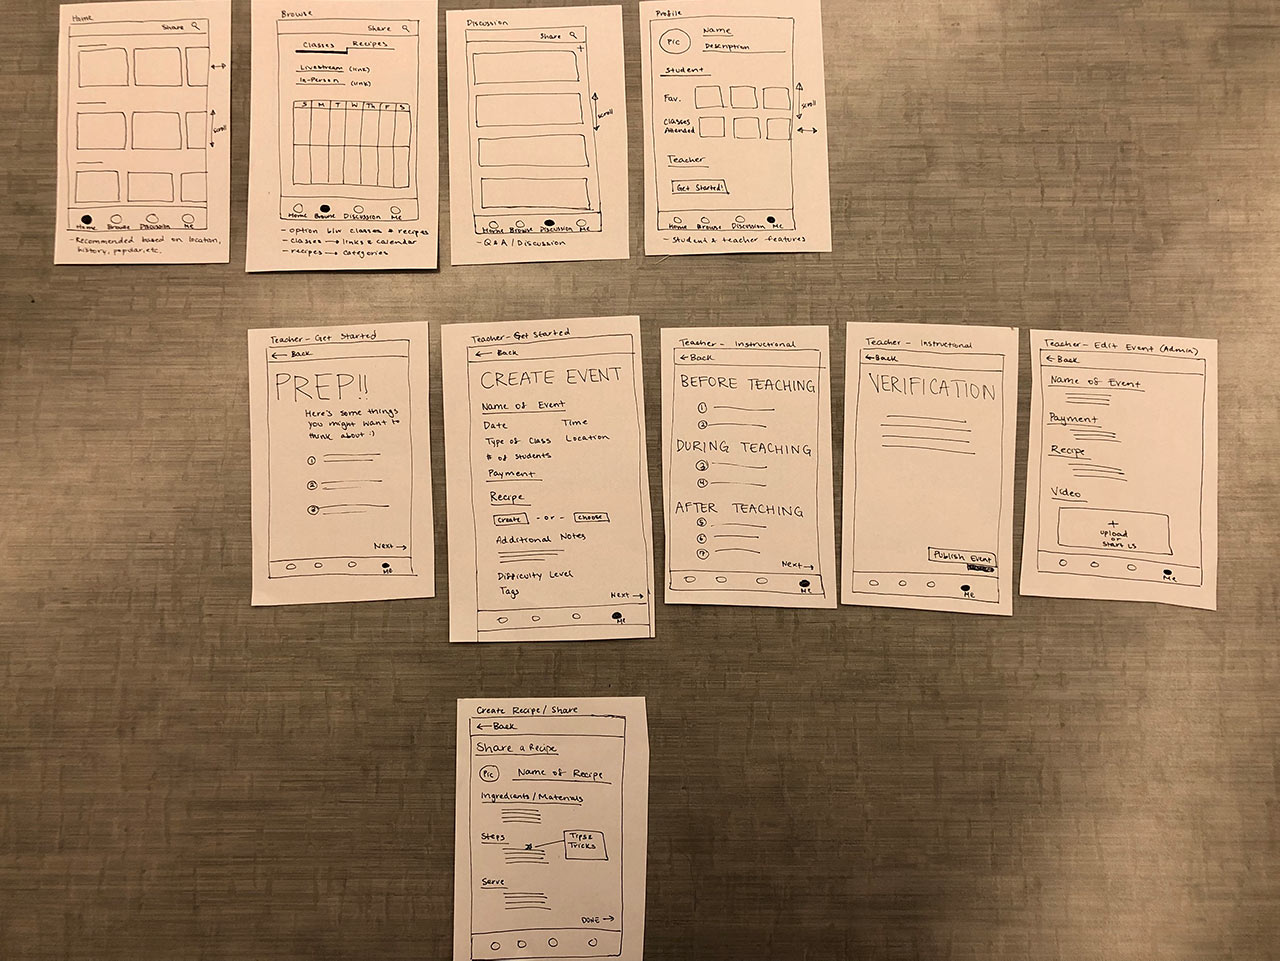 Home
Share
Home Browse Discussion Me
- Recommended based on location,
history, popular, etc.
scroll
Browse
Share
Classes Recipes
Livestream (link)
In-Person (link)
S M T W Th F S
Home Browse Discussion Me
- option b/w classes & recipes
- classes → links & calendar
- recipes → categories
Discussion
Share
+
scroll
Home Browse Discussion Me
- Q&A / Discussion
Profile
Pic
Name
Description
Student
Fav.
Classes
Attended
scroll
Teacher
Get Started!
Home Browse Discussion Me
- student & teacher features
Teacher - Get Started
← Back
PREP!!
Here's some things
you might want to
think about :)
1
2
3
Next →
Me
Teacher - Get Started
← Back
CREATE EVENT
Name of Event
Date Time
Type of Class Location
# of students
Payment
Recipe
Create - or - Choose
Additional Notes
Difficulty Level
Tags
Next →
Me
Teacher - Instructional
← Back
BEFORE TEACHING
1
2
DURING TEACHING
3
4
AFTER TEACHING
5
6
7
Next →
Me
Teacher - Instructional
← Back
VERIFICATION
Publish Event
Me
Teacher - Edit Event (Admin)
← Back
Name of Event
Payment
Recipe
Video
+
upload
or
start LS
Me
Create Recipe / Share
← Back
Share a Recipe
Pic Name of Recipe
Ingredients / Materials
Steps
Tips &
Tricks
Serve
DONE →